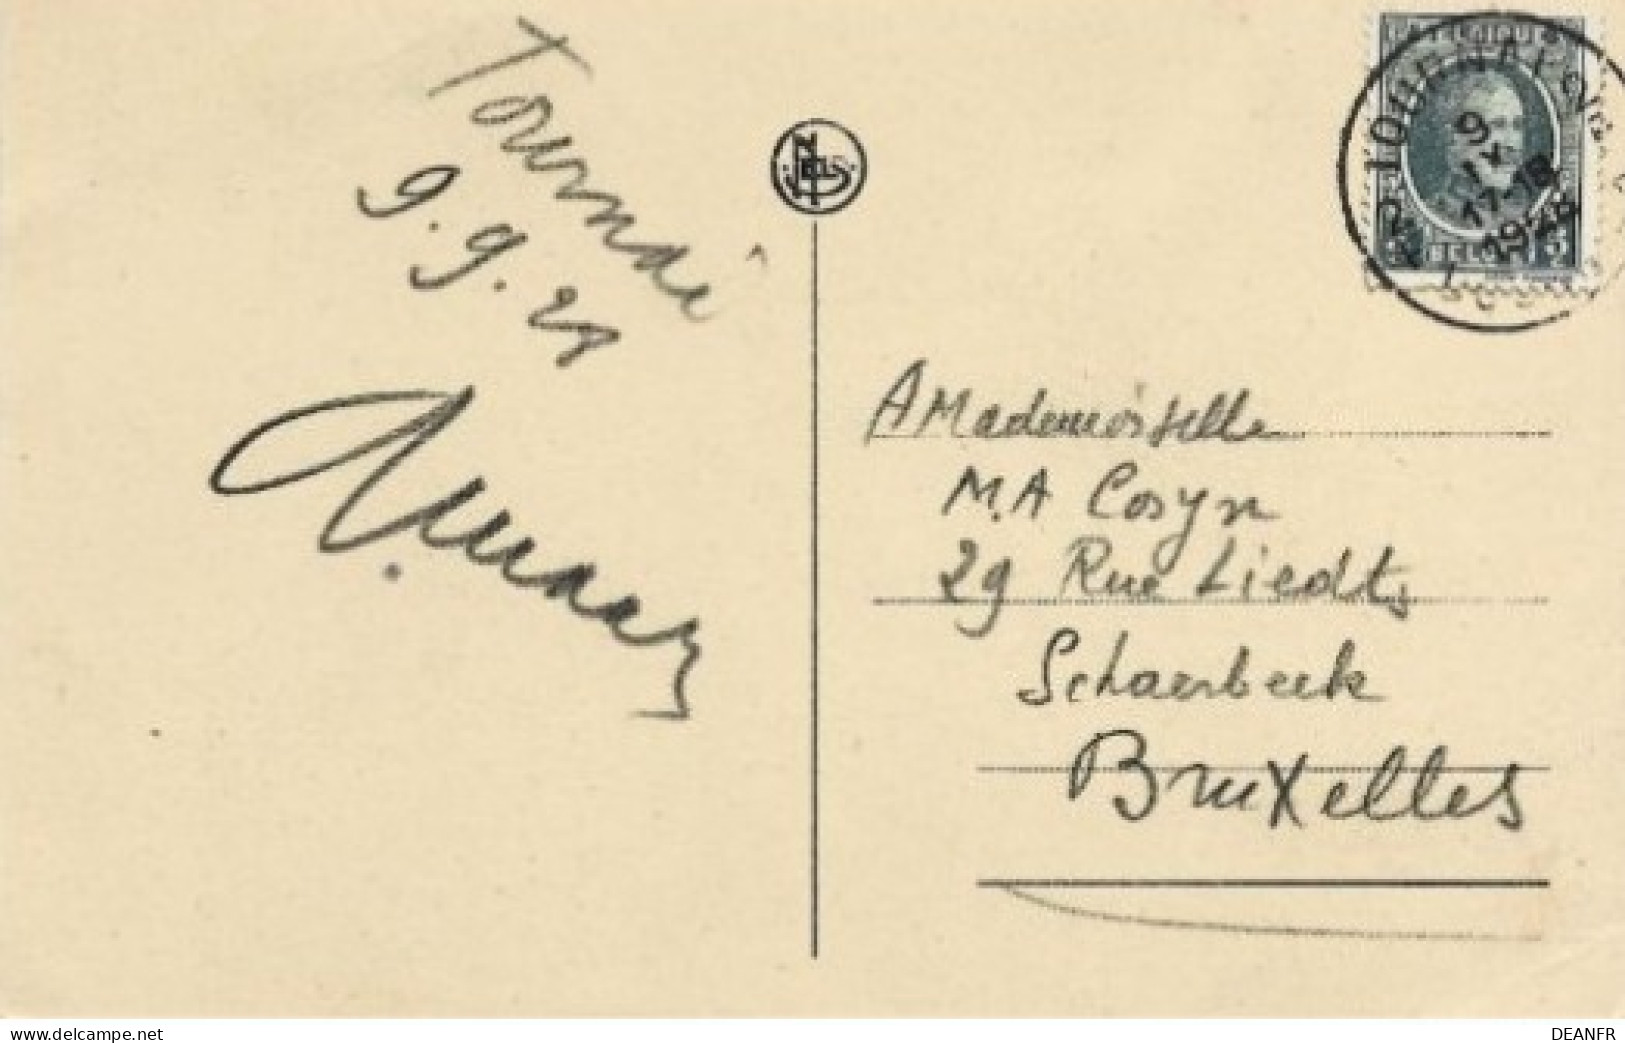 Tournai
9.9.24
A Mademoiselle
M.A Cosyn
29 Rue Liedts
Schaerbeek
Bruxelles
TOURNAI
9
IX
17-18
BELGIQUE
BELGIË
NELS
www.delcampe.net
DEANFR